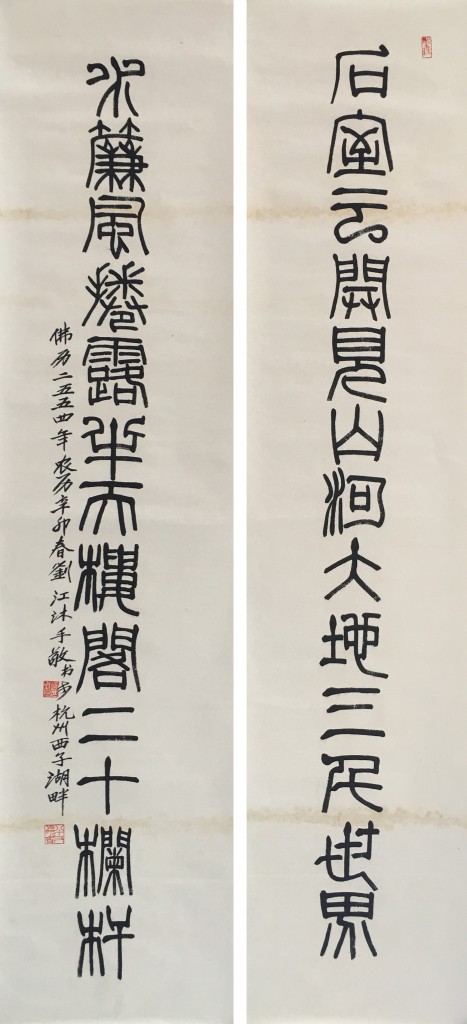 石室云開見山河大地三千世界
水簾風捲露半天樓閣二十欄杆
佛历二五五四年农历辛卯春劉江沐手敬书于杭州西子湖畔